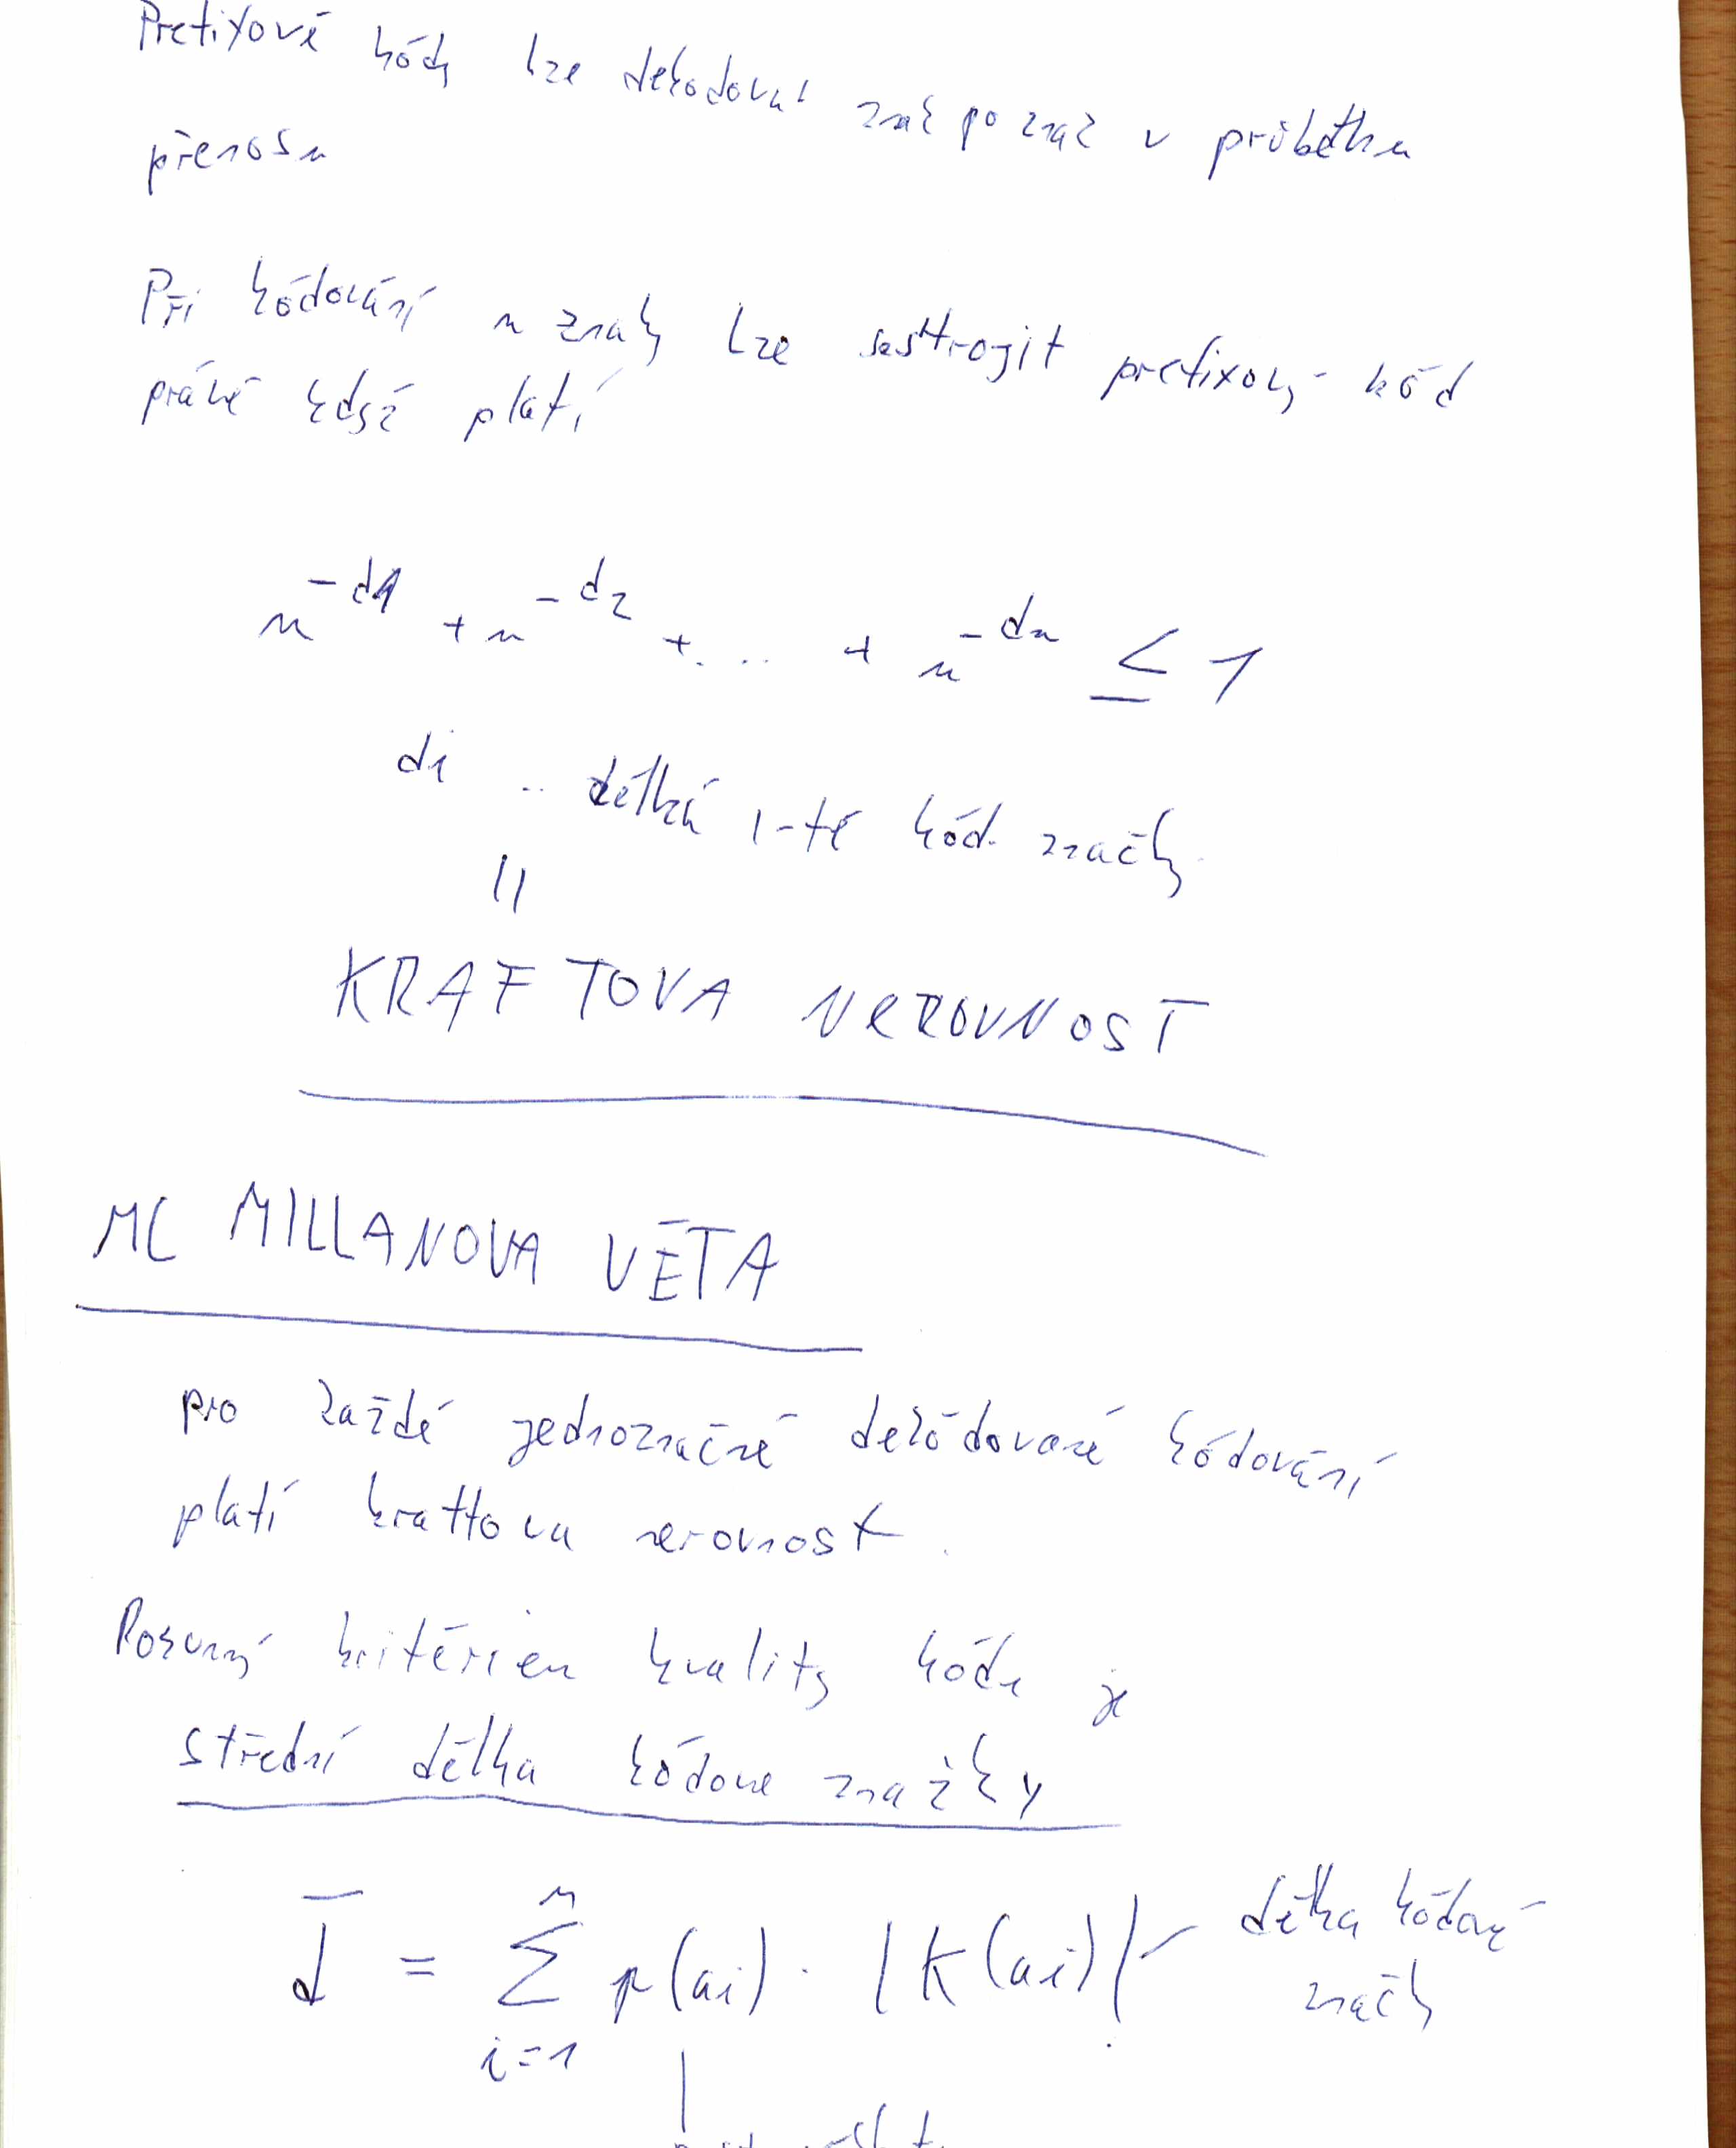 Prefixové kódy lze dekodovat znač po znač v průběhu
přenosu
Při kódování n znaky lze sestrojit prefixový kód
právě když platí
n^-d1 + n^-d2 + ... + n^-dn ≤ 1
di .. délka i-té kód. značky
||
KRAFTOVA NEROVNOST
MC MILLANOVA VĚTA
pro každé jednoznačně dekódované kódování
platí kraftova nerovnost.
kritériem kvality kódu je
střední délka kódové značky
d̄ = Σ p(ai) · |K(ai)| délka kódové
značky
n
i=1